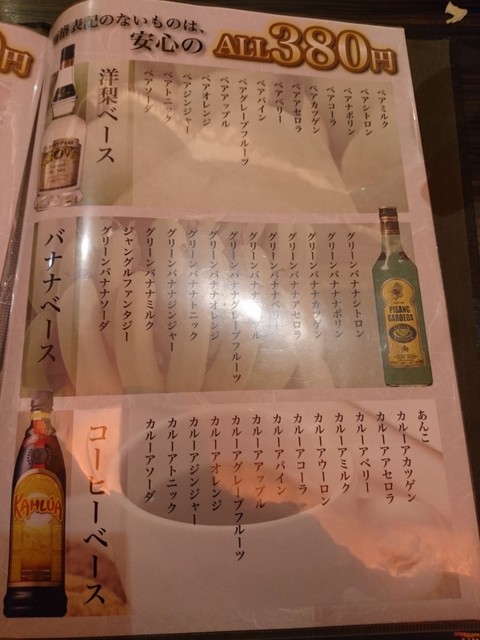 価格表記のないものは、
安心の ALL380円
0円
洋梨ベース
ペアミルク
ペアシトロン
ペアナポリン
ペアコーラ
ペアカツゲン
ペアアセロラ
ペアベリー
ペアパイン
ペアアップル
ペアグレープフルーツ
ペアオレンジ
ペアジンジャー
ペアトニック
ペアソーダ
バナナベース
グリーンバナナシトロン
グリーンバナナナポリン
グリーンバナナカツゲン
グリーンバナナアセロラ
グリーンバナナベリー
グリーンバナナグレープフルーツ
グリーンバナナオレンジ
グリーンバナナトニック
グリーンバナナジンジャー
グリーンバナナミルク
ジャングルファンタジー
グリーンバナナソーダ
PISANG
GAROEDA
コーヒーベース
あんこ
カルーアカツゲン
カルーアアセロラ
カルーアベリー
カルーアミルク
カルーアウーロン
カルーアコーラ
カルーアパイン
カルーアアップル
カルーアグレープフルーツ
カルーアオレンジ
カルーアジンジャー
カルーアトニック
カルーアソーダ
KAHLÚA